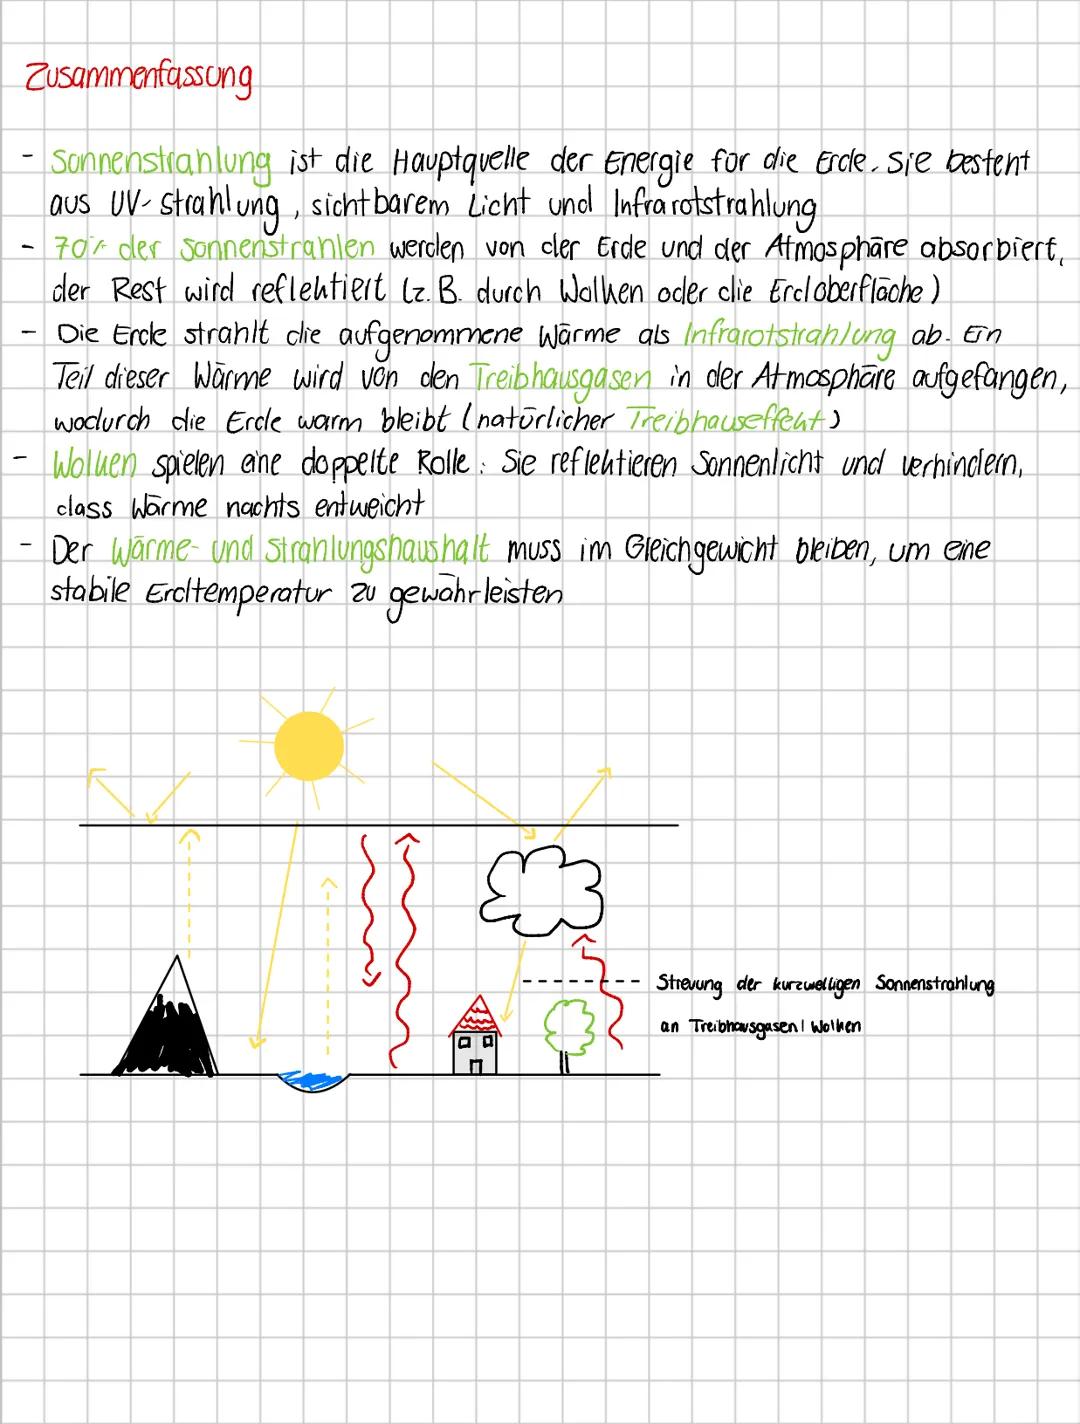 Zusammenfassung
- Sonnenstrahlung ist die Hauptquelle der Energie für die Erde. Sie besteht
aus UV-Strahlung, sichtbarem Licht und Infrarotstrahlung
- 70% der Sonnenstrahlen werden von der Erde und der Atmosphäre absorbiert,
der Rest wird reflektiert (z.B. durch Wolken oder die Erdoberfläche)
- Die Erde strahlt die aufgenommene Wärme als Infrarotstrahlung ab. Ein
Teil dieser Wärme wird von den Treibhausgasen in der Atmosphäre aufgefangen,
wodurch die Erde warm bleibt (natürlicher Treibhauseffekt)
- Wolken spielen eine doppelte Rolle: Sie reflektieren Sonnenlicht und verhindern,
dass Wärme nachts entweicht
- Der Wärme- und Strahlungshaushalt muss im Gleichgewicht bleiben, um eine
stabile Erdtemperatur zu gewährleisten
Streuung der kurzwelligen Sonnenstrahlung
an Treibhausgasen/Wolken